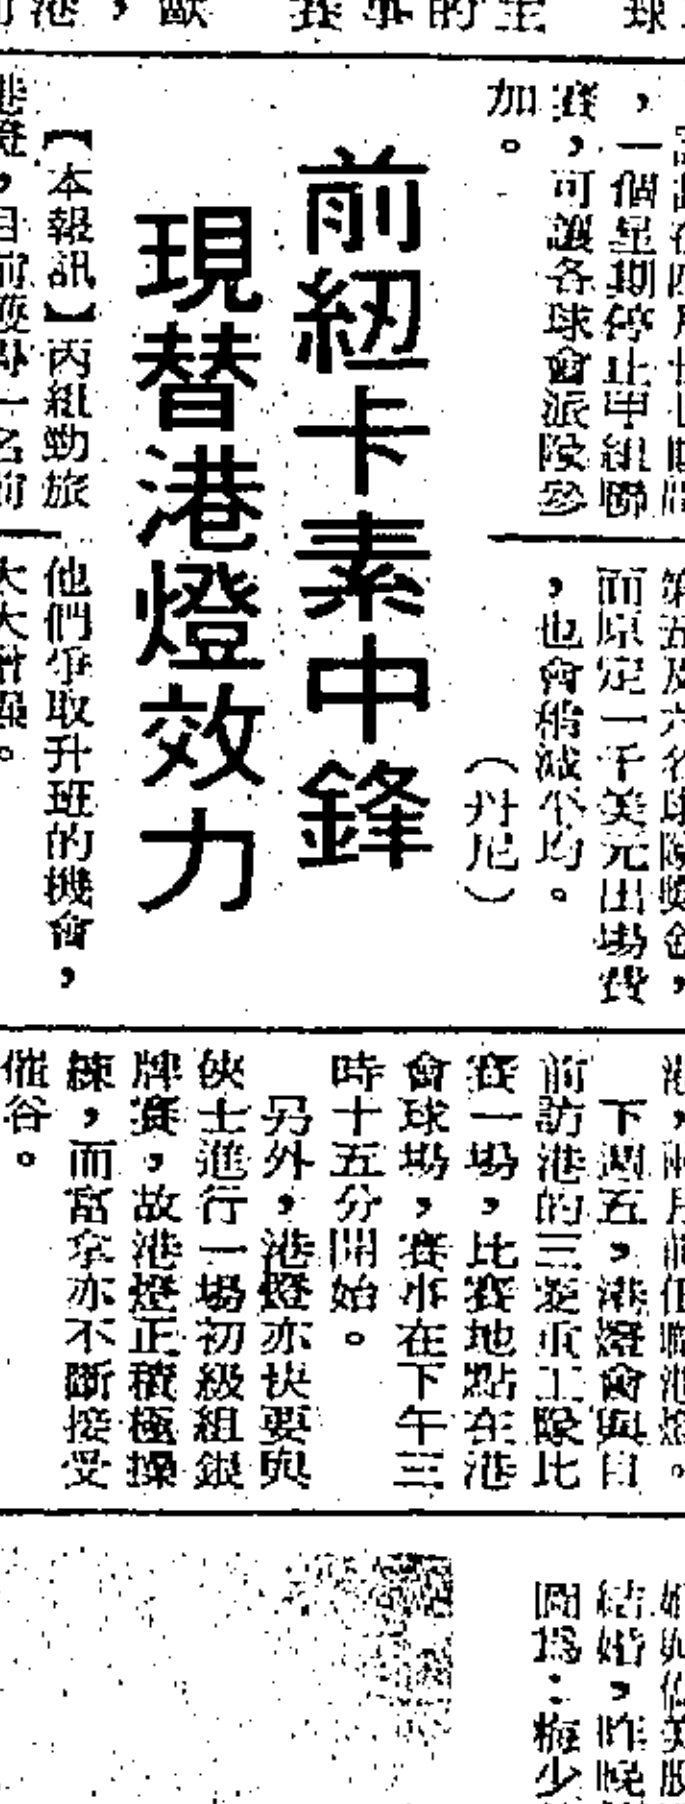 加。
賽，可讓各球會派隊參
，一個星期停止甲組聯
而原定一千美元出場費
，也會稍減不均。
（丹尼）
前紐卡素中鋒
現替港燈效力
【本報訊】丙組勁旅
港燈，目前獲得一名前
他們爭取升班的機會，
大大增強。
下週五，港燈會與日
前訪港的三菱重工隊比
賽一場，比賽地點在港
會球場，賽事在下午三
時十五分開始。
另外，港燈亦快要與
俠士進行一場初級組銀
牌賽，故港燈正積極操
練，而富拿亦不斷接受
催谷。
結婚，昨晚
圖為：梅少